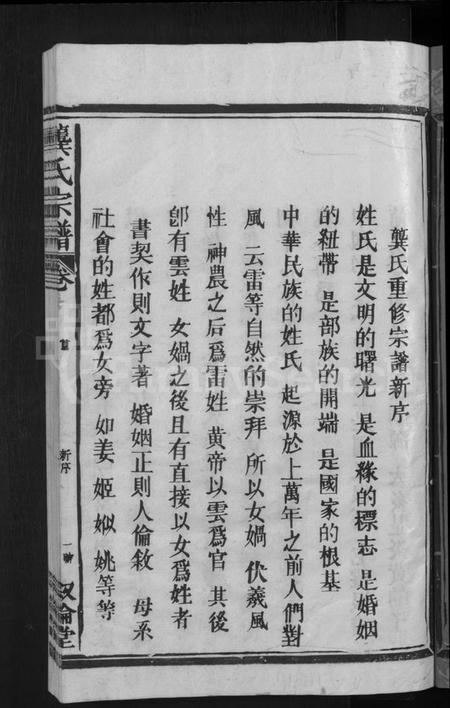 龔氏重修宗譜新序
姓氏是文明的曙光 是血緣的標志 是婚姻
的紐帶 是部族的開端 是國家的根基
中華民族的姓氏 起源於上萬年之前人們對
風 云雷等自然的崇拜 所以女媧 伏羲風
性 神農之后爲雷姓 黃帝以雲爲官 其後
卽有雲姓 女媧之後且有直接以女爲姓者
書契作則文字著 婚姻正則人倫敘 母系
社會的姓都爲女旁 如姜 姬 姒 姚等等
龔氏宗譜
卷
首
新序
一
敘倫堂